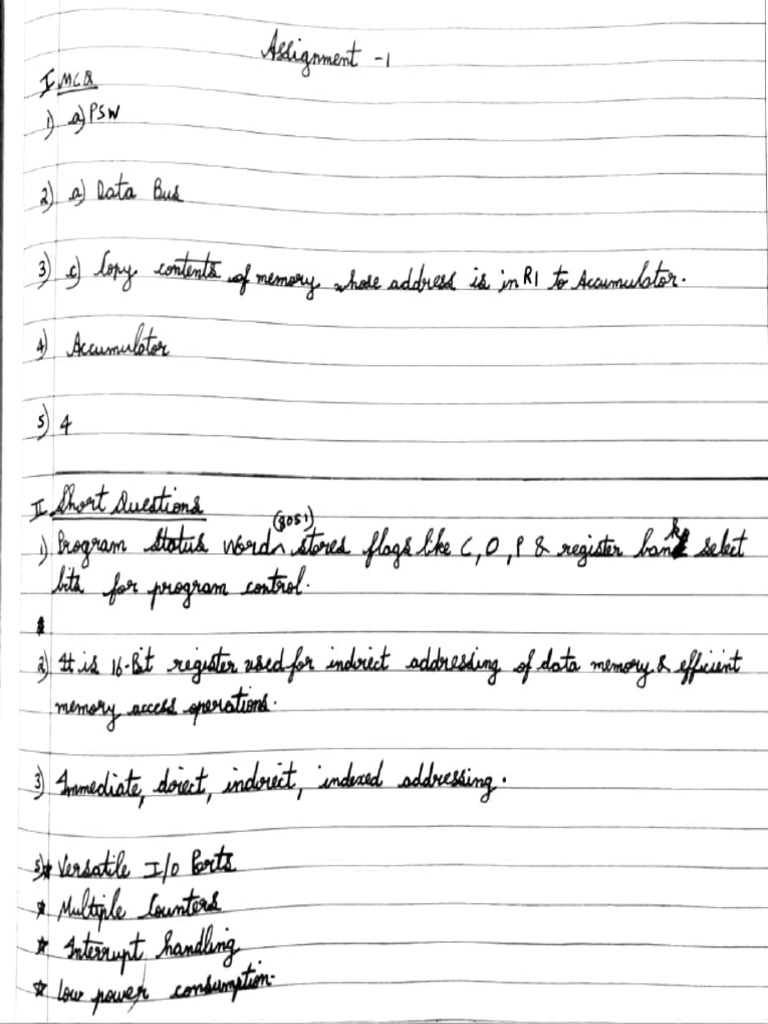 Assignment -1
I MCQ
1) a) PSW
2) a) Data Bus
3) c) Copy contents of memory whose address is in R1 to Accumulator.
4) Accumulator
5) 4
II Short Questions
(8051)
1) Program Status Word stores flags like C, O, P & register bank select
bits for program control.
2) It is 16-Bit register used for indirect addressing of data memory & efficient
memory access operations.
3) Immediate, direct, indirect, indexed addressing.
5) * Versatile I/O Ports
* Multiple Counters
* Interrupt handling
* Low power consumption.